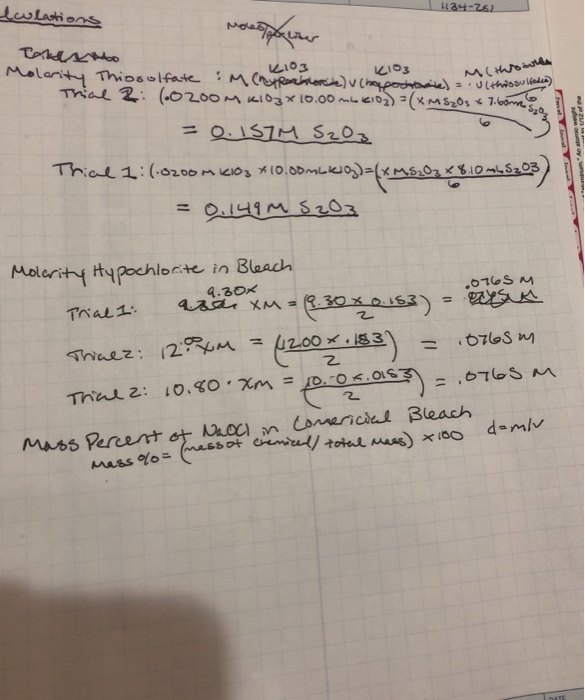 lculations
Moles per Liter
1(34-26)
KIO3 KIO3
Molarity Thiosulfate : M (hypochlorite) V (hypochlorite) = · V (thiosulfate)
6
Trial 2: (.0200 M KIO3 × 10.00 mL KIO3) = (x M S2O3 × 7.60mL S2O3)
6
= 0.157M S2O3
Trial 1: (.0200 M KIO3 × 10.00mL KIO3) = (x M S2O3 × 8.10 mL S2O3)
6
= 0.149M S2O3
Molarity Hypochlorite in Bleach
9.30x .0765 M
Trial 1: xM = (9.30 × 0.153) =
2
Trial 2: 12.00 xM = (1200 × .153) = .0765 M
2
Trial 2: 10.80 · xM = × .0153) = .0765 M
2
Mass Percent of NaOCl in Comericial Bleach
Mass % = (mass of chemical / total mass) × 100 d=m/v
DATE